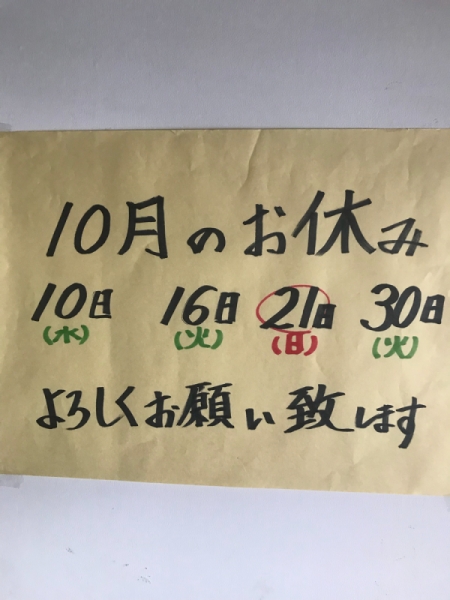 10月のお休み
10日 16日 21日 30日
(水) (火) (日) (火)
よろしくお願い致します